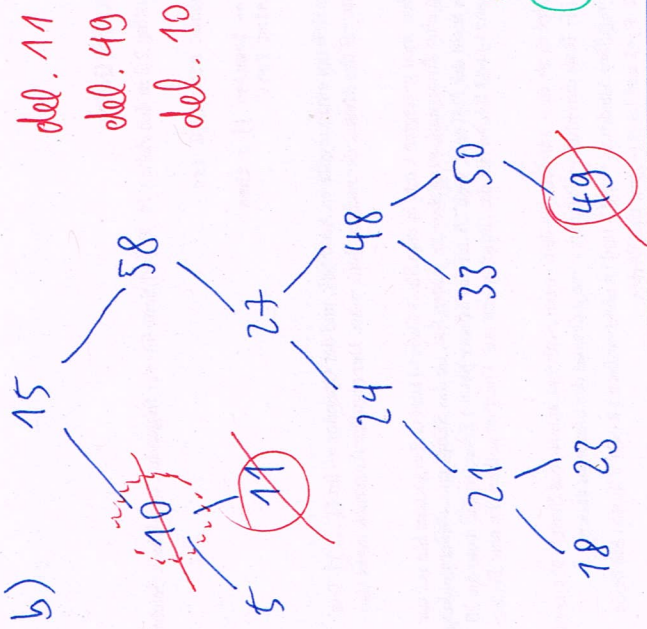 b)
15
del. 11
del. 49
del. 10
10 58
5 11 27
24 48
21 33 50
18 23 49